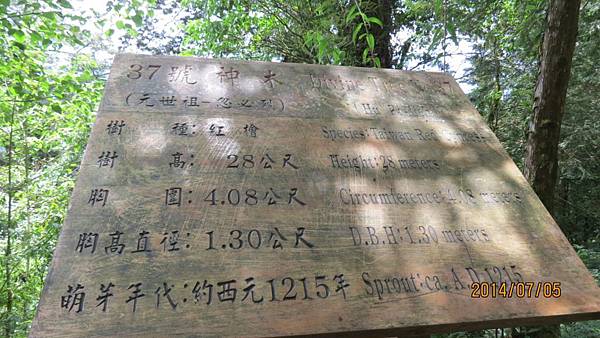 37號神木 Divine Tree No.37
(元世祖-忽必烈)
樹 種:紅檜 Species:Taiwan Red
樹 高: 28公尺 Height:28 meters
胸 圍:4.08公尺 Circumference:4.08 meters
胸高直徑:1.30公尺 D.B.H:1.30 meters
萌芽年代:約西元1215年 Sprout:ca. A.D.1215
2014/07/05